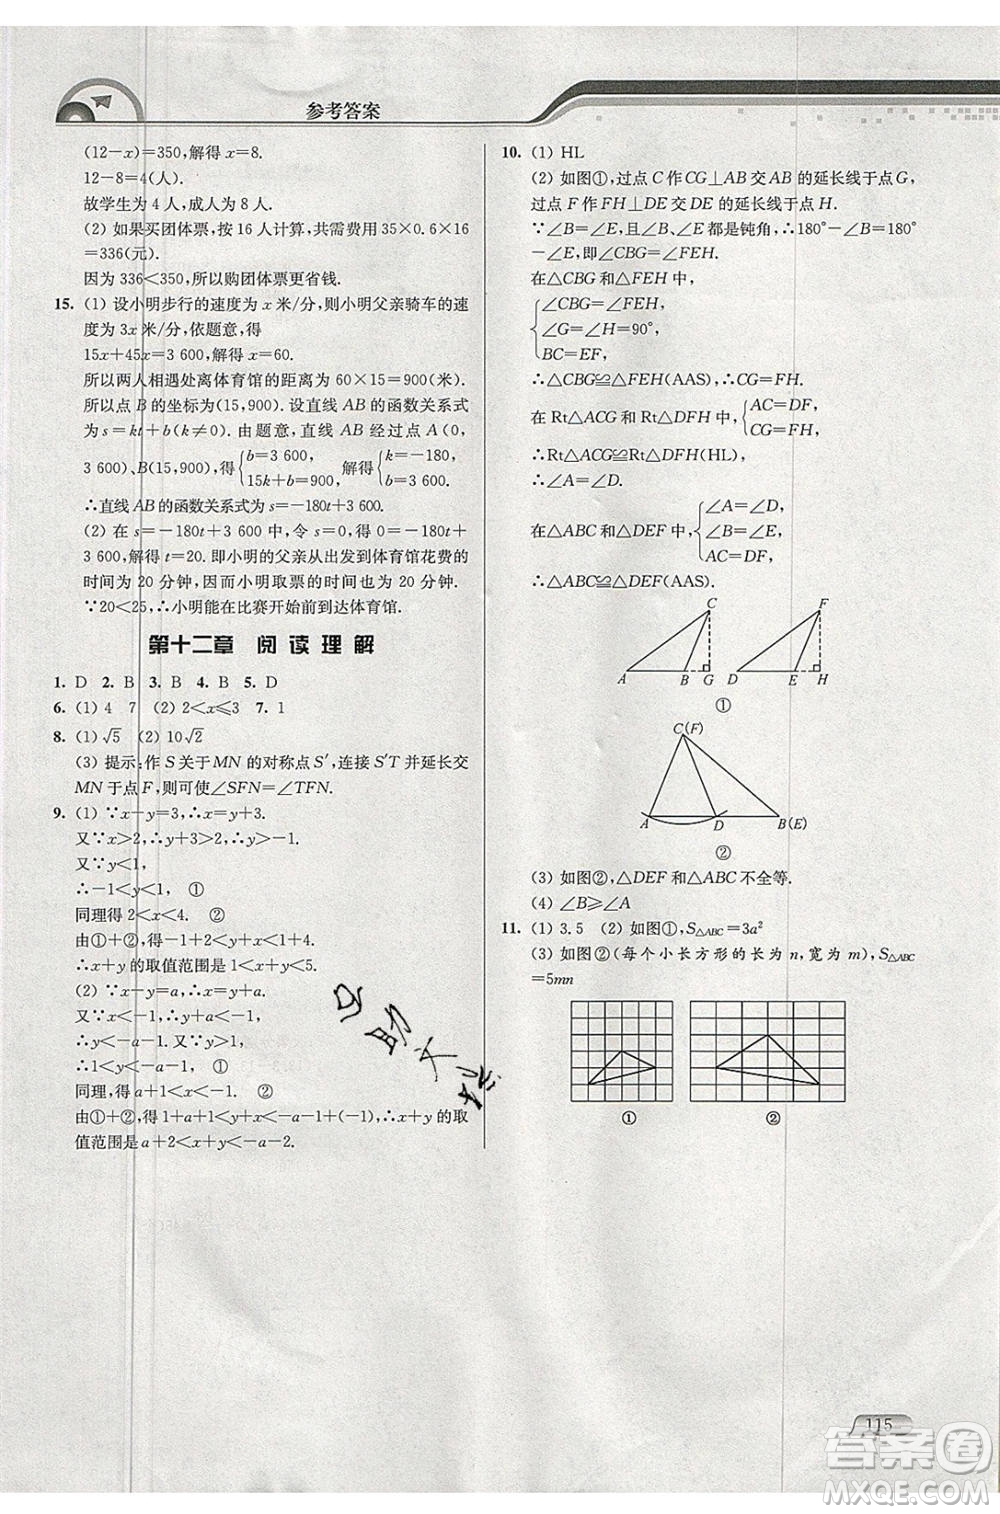 参考答案
(12－x)=350,解得 x=8.
12－8=4(人).
故学生为 4 人,成人为 8 人.
(2) 如果买团体票,按 16 人计算,共需费用 35×0.6×16
=336(元).
因为 336<350,所以购团体票更省钱.
15. (1) 设小明步行的速度为 x 米/分,则小明父亲骑车的速
度为 3x 米/分,依题意,得
15x+45x=3 600,解得 x=60.
所以两人相遇处离体育馆的距离为 60×15=900(米).
所以点 B 的坐标为(15,900). 设直线 AB 的函数关系式
为 s=kt+b(k≠0). 由题意,直线 AB 经过点 A(0,
3 600)、B(15,900),得{b=3 600, 15k+b=900, 解得{k=－180, b=3 600.
∴直线 AB 的函数关系式为 s=－180t+3 600.
(2) 在 s=－180t+3 600 中,令 s=0,得 0=－180t+3
600,解得 t=20. 即小明的父亲从出发到体育馆花费的
时间为 20 分钟,因而小明取票的时间也为 20 分钟.
∵20<25,∴小明能在比赛开始前到达体育馆.
第十二章 阅读理解
1. D 2. B 3. B 4. B 5. D
6. (1) 4 7 (2) 2<x≤3 7. 1
8. (1) √5 (2) 10√2
(3) 提示:作 S 关于 MN 的对称点 S′,连接 S′T 并延长交
MN 于点 F,则可使 ∠SFN=∠TFN.
9. (1) ∵x－y=3,∴x=y+3.
又∵x>2,∴y+3>2,∴y>－1.
又∵y<1,
∴－1<y<1, ①
同理得 2<x<4. ②
由①+②,得－1+2<y+x<1+4.
∴x+y 的取值范围是 1<x+y<5.
(2) ∵x－y=a,∴x=y+a.
又∵x<－1,∴y+a<－1,
∴y<－a－1. 又∵y>1,
∴1<y<－a－1. ①
同理,得 a+1<x<－1. ②
由①+②,得 1+a+1<y+x<－a－1+(－1),∴x+y 的取
值范围是 a+2<x+y<－a－2.
10. (1) HL
(2) 如图①,过点 C 作 CG⊥AB 交 AB 的延长线于点 G,
过点 F 作 FH⊥DE 交 DE 的延长线于点 H.
∵∠B=∠E,且∠B、∠E 都是钝角,∴180°－∠B=180°
－∠E,即∠CBG=∠FEH.
在△CBG 和△FEH 中,
{∠CBG=∠FEH,
∠G=∠H=90°,
BC=EF,
∴△CBG≌△FEH(AAS). ∴CG=FH.
在 Rt△ACG 和 Rt△DFH 中,{AC=DF, CG=FH,
∴Rt△ACG≌Rt△DFH(HL).
∴∠A=∠D.
在△ABC 和△DEF 中,{∠A=∠D, ∠B=∠E, AC=DF,
∴△ABC≌△DEF(AAS).
C F
A B G D E H
①
C(F)
A D B(E)
②
(3) 如图②,△DEF 和△ABC 不全等.
(4) ∠B≥∠A
11. (1) 3.5 (2) 如图①,S△ABC=3a²
(3) 如图②(每个小长方形的长为 n,宽为 m),S△ABC
=5mn
① ②
115
答案圈
MXQE.COM